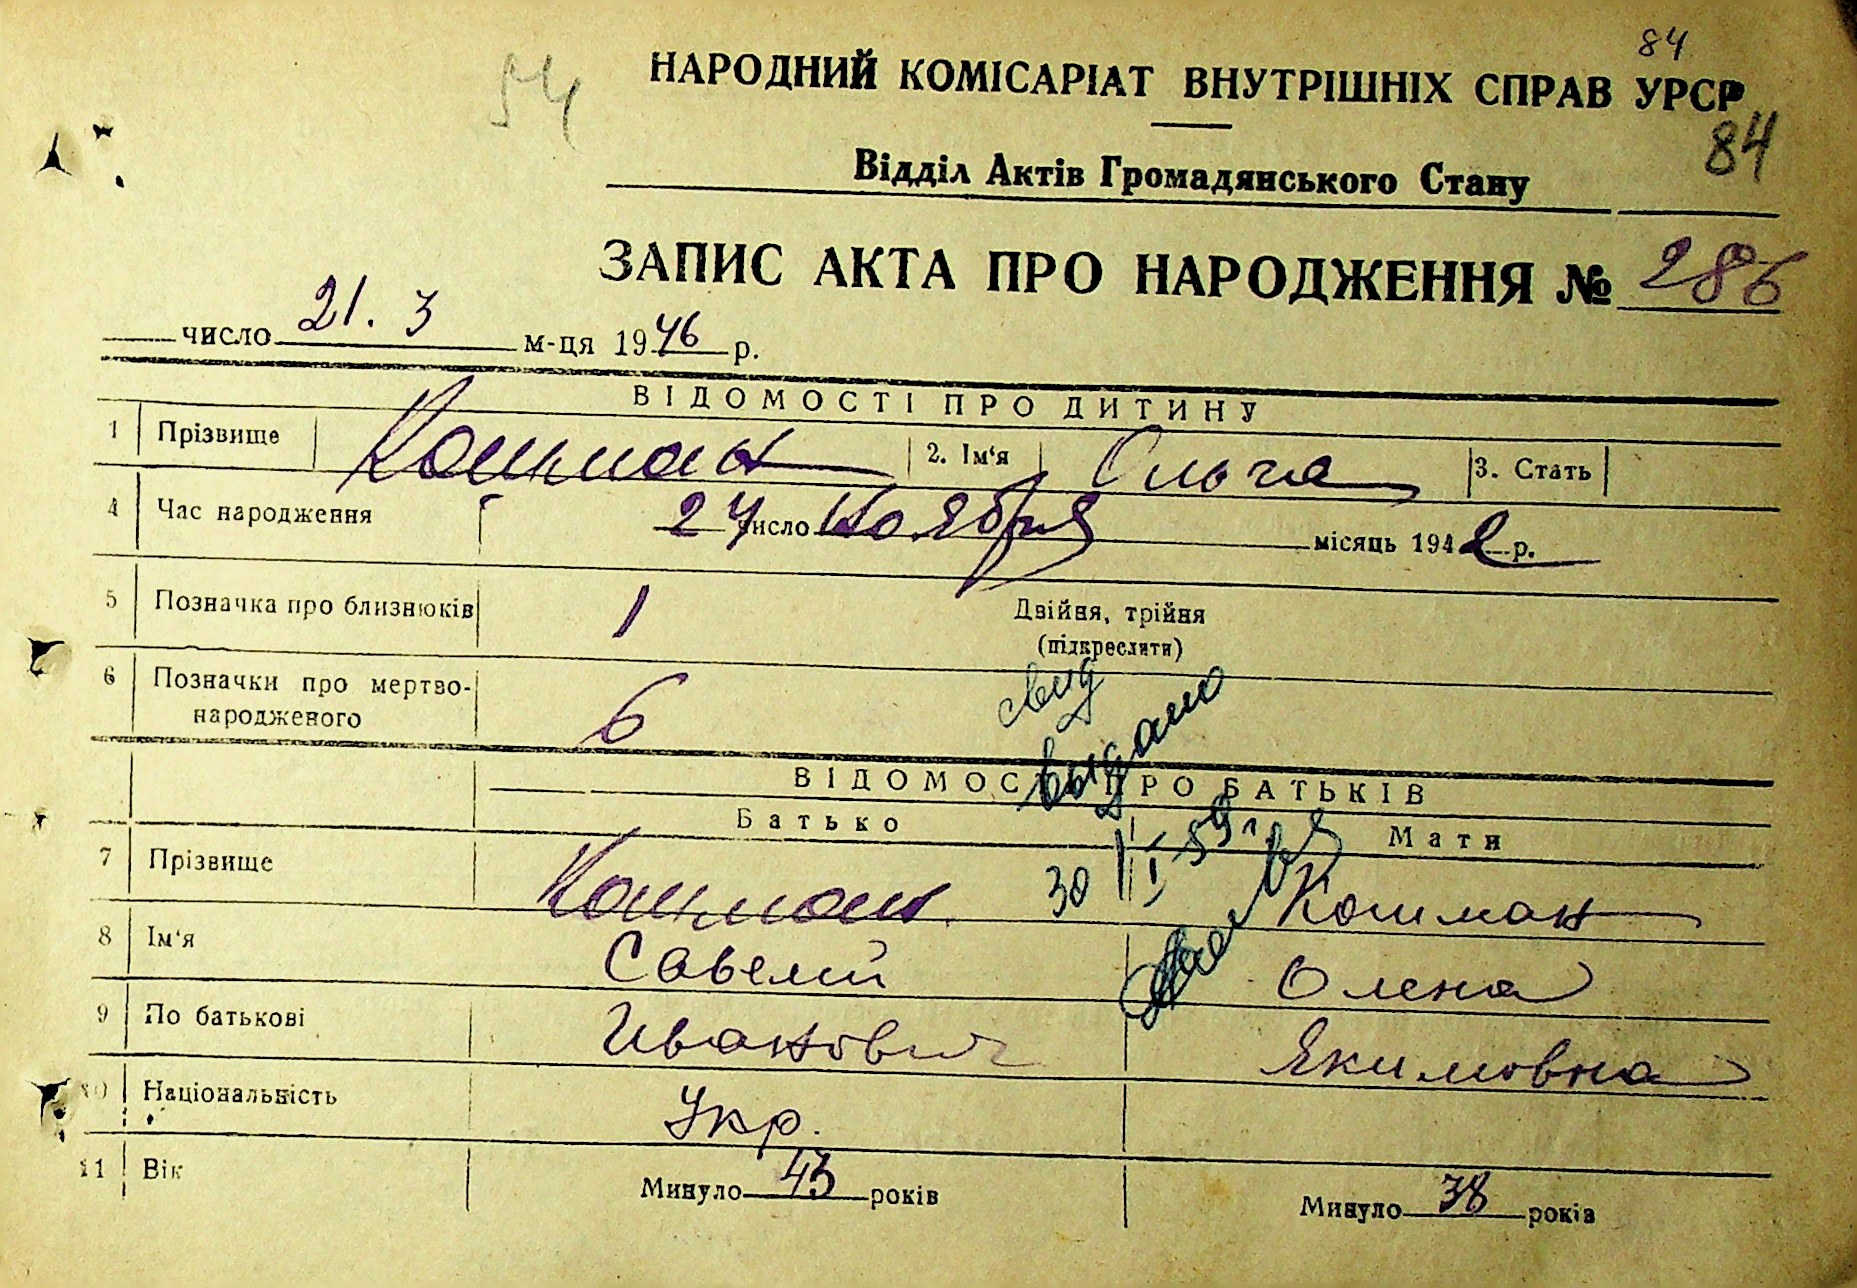 84
54
НАРОДНИЙ КОМІСАРІАТ ВНУТРІШНІХ СПРАВ УРСР
84
Відділ Актів Громадянського Стану
ЗАПИС АКТА ПРО НАРОДЖЕННЯ № 286
число 21. 3 м-ця 1946 р.
ВІДОМОСТІ ПРО ДИТИНУ
1 Прізвище Кошман 2. Ім‘я Ольга 3. Стать
4 Час народження 27 число Ноября місяць 1942 р.
5 Позначка про близнюків 1 Двійня, трійня
(підкреслити)
6 Позначки про мертво-
народженого 6
свид
выдано
ВІДОМОСТІ ПРО БАТЬКІВ
Батько Мати
30 I 59 г.
7 Прізвище Кошман. Кошман
8 Ім‘я Савелий Олена
9 По батькові Иванович Якимовна
10 Національність Укр.
11 Вік Минуло 43 років Минуло 38 років